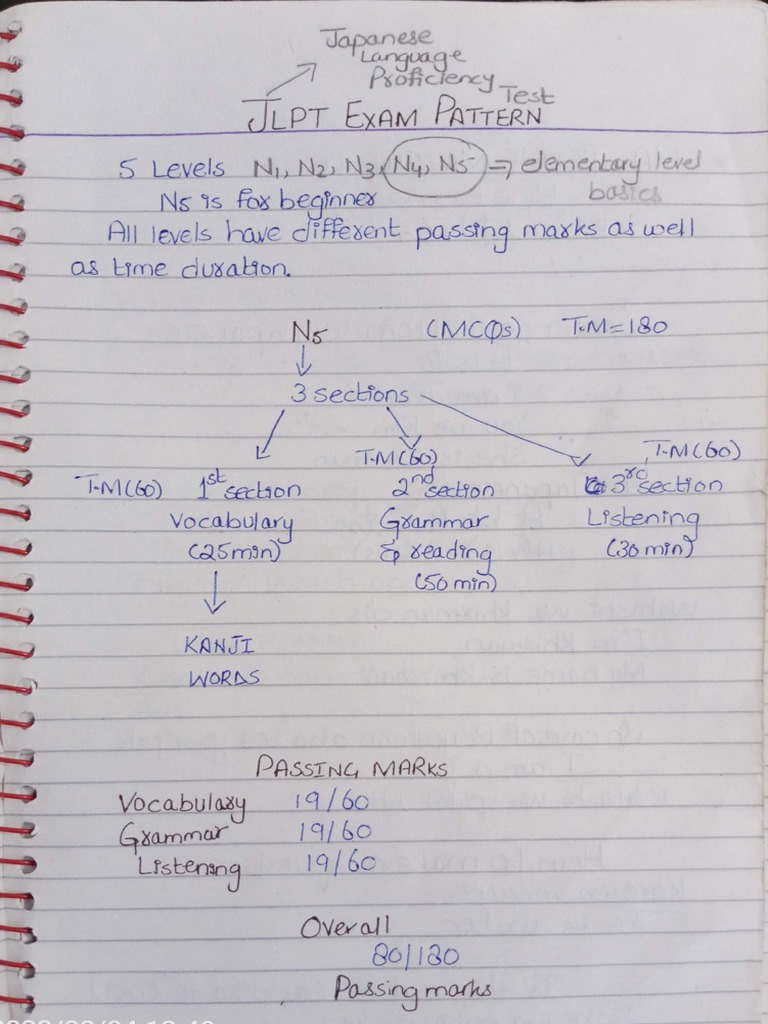 Japanese
Language
Proficiency
Test
JLPT EXAM PATTERN
5 Levels N1, N2, N3, N4, N5 → elementary level
basics
N5 is for beginner
All levels have different passing marks as well
as time duration.
N5 (MCQs) T.M=180
3 sections
T.M(60) 1st section
Vocabulary
(25min)
KANJI
WORDS
T.M(60)
2nd section
Grammar
& reading
(50min)
T.M(60)
3rd section
Listening
(30 min)
PASSING MARKS
Vocabulary 19/60
Grammar 19/60
Listening 19/60
Overall
80/180
Passing marks